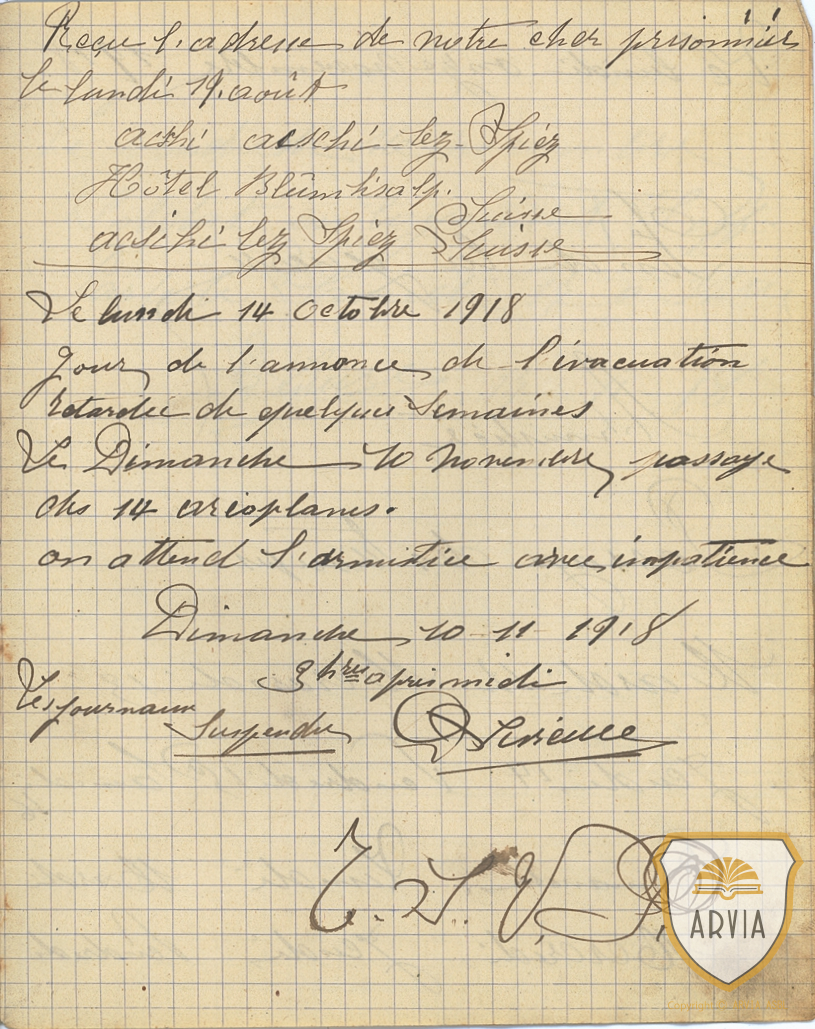 Reçu l'adresse de notre cher prisonnier
le lundi 19 août
aeshi aeschi-lez-Spiez
Hôtel Blümlisalp.
Suisse
aeschi lez Spiez Suisse
Le lundi 14 Octobre 1918
Jour de l'annonce de l'évacuation
retardée de quelques semaines
Le Dimanche 10 Novembre, passage
des 14 aréoplanes.
on attend l'armistice avec impatience
Dimanche 10-11-1918
3 hres après midi
Les journaux
Suspendus
T. S. V. P.
ARVIA